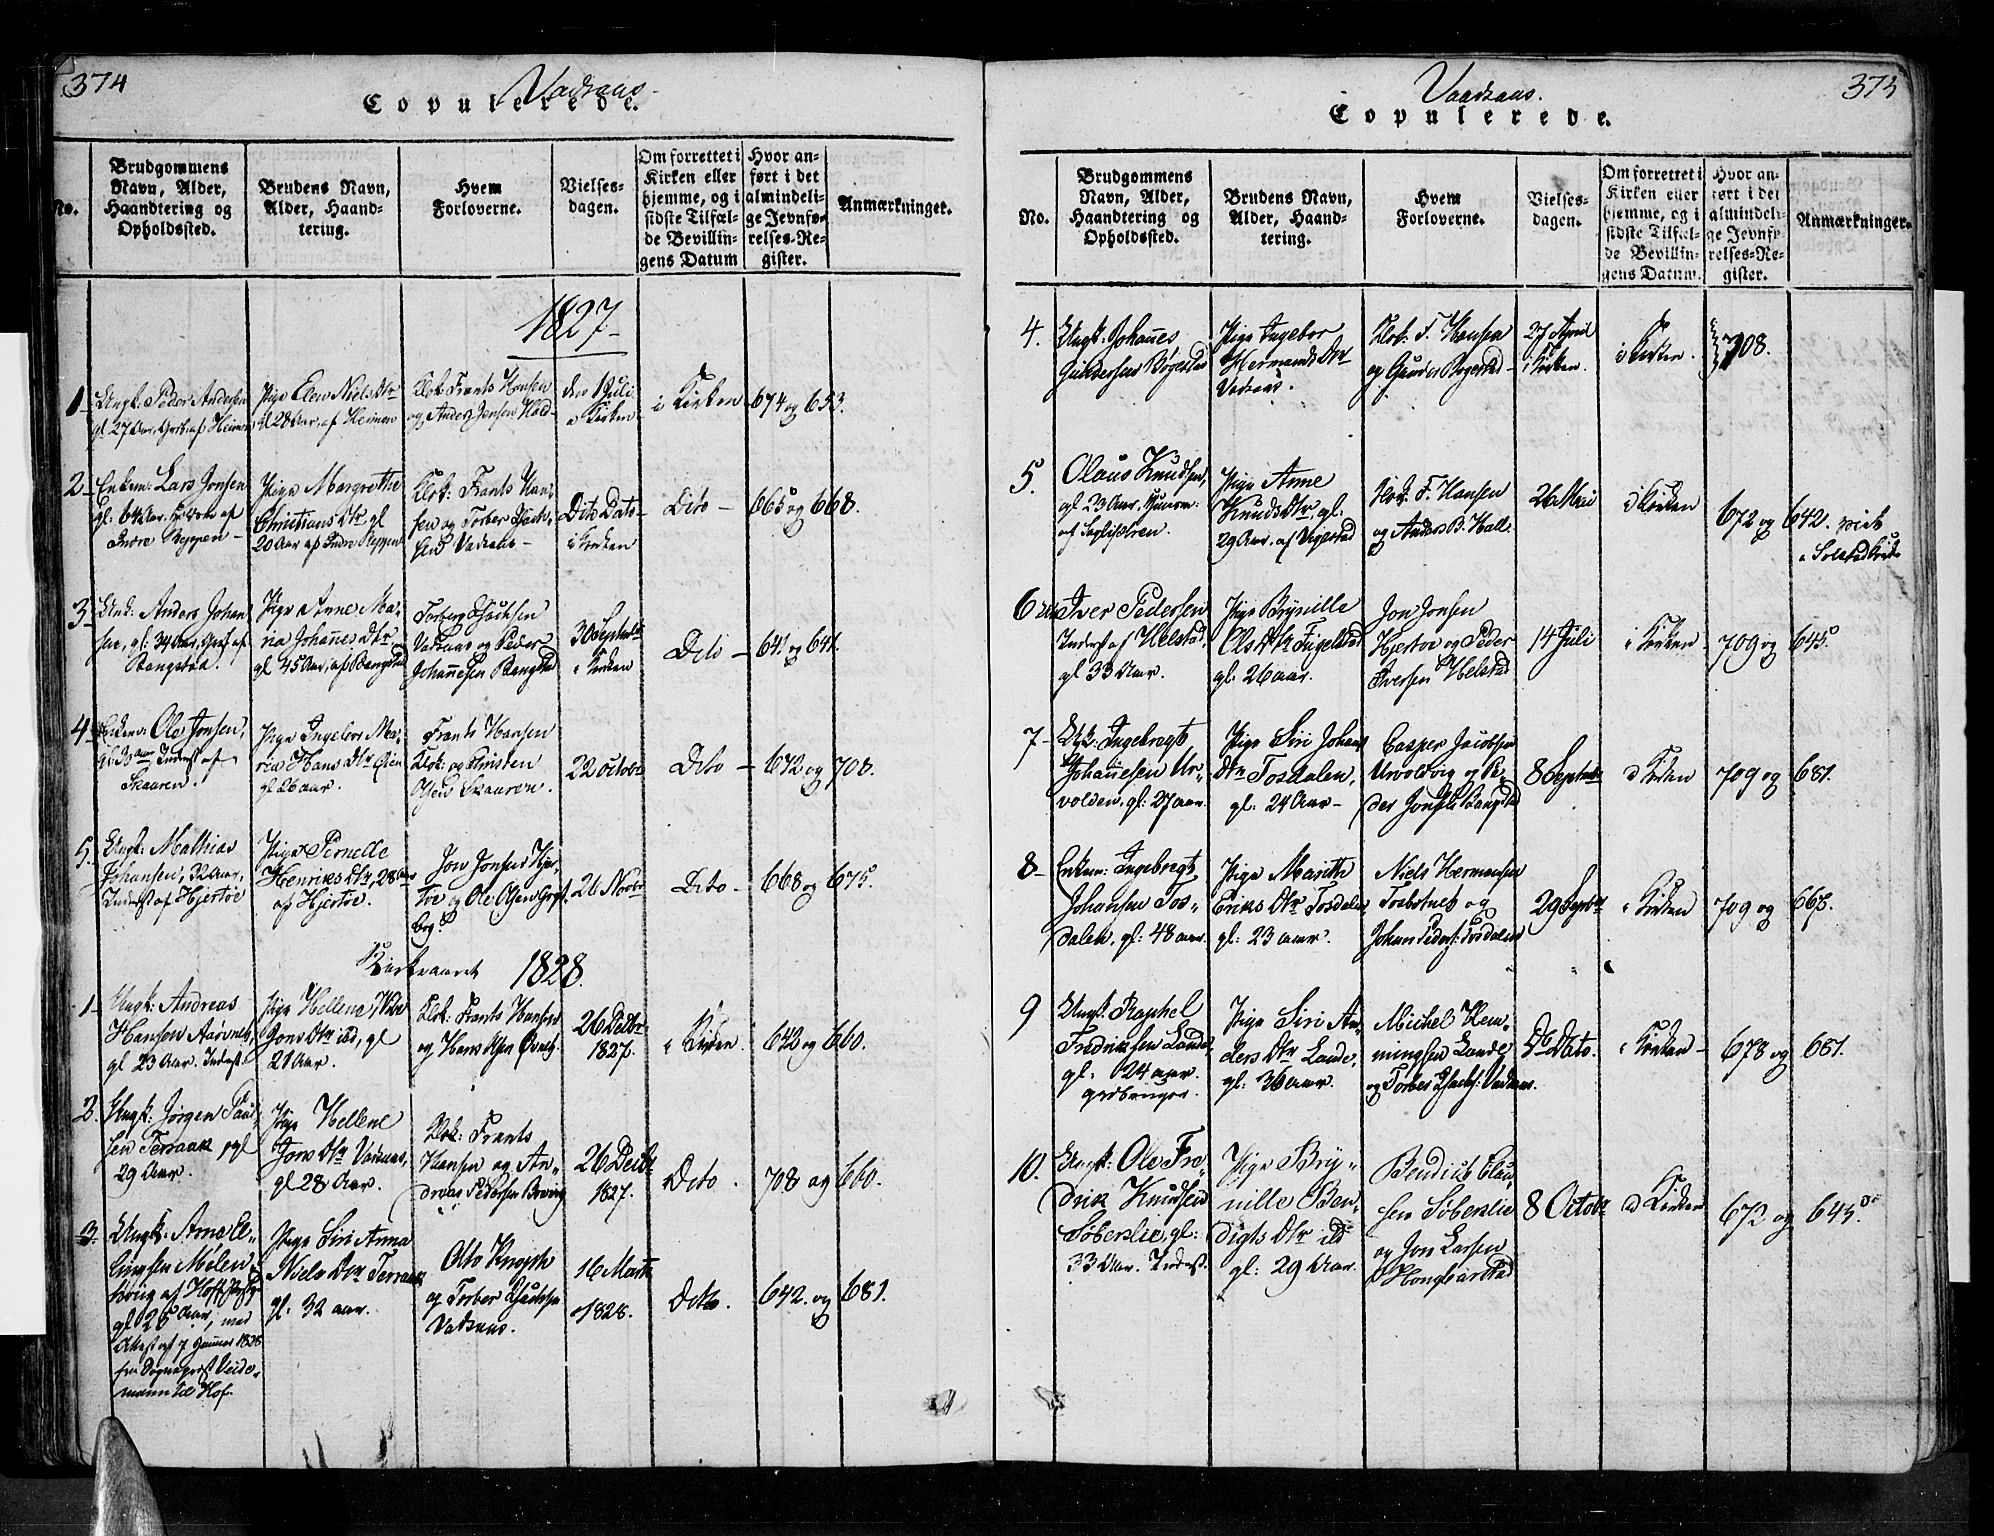 374
Vadsaas
Copulerede.
No.
Brudgommens Navn, Alder, Haandtering og Opholdssted.
Brudens Navn, Alder, Haandtering.
Hvem Forloverne.
Vielsesdagen.
Om forrettet i Kirken eller hjemme, og i sidste Tilfælde Bevillingens Datum
Hvor anført i det almindelige Jevnførelses-Register.
Anmærkninger.
1827
1 Ungk: Peder Andersen
gl 27 Aar, af Heimen
Pige Elen Niels Dtr
gl 28 Aar, af Heimen
Klok: Frants Hansen
og Anders Jensen
den 1 Juli
i Kirken
i Kirken
674 og 653.
2 Enkem: Lars Jonsen
gl. 64 Aar, af
Indre
Pige Margrethe
Christians Dtr gl
20 Aar af Indre
Klok: Frants Hansen
og Torber
Vadsaas
Dito Dato
i Kirken
Dito
665 og 668.
3 Ungk: Anders Johansen,
gl: 34 Aar, af
Bangstad.
Pige Anne Maria
Johannes Dtr
gl 45 Aar, af Bangstad
Torberg
Vadsaas og Peder
Johannesen Bangstad
30 Septembr
i Kirken
Dito
641 og 641.
4 Enkem: Ole Jonsen,
Inderst af
Skaaren.
Pige Ingebor Maria
Hans Dtr
gl 26 aar.
Frants Hansen
Klok: og Christen
Olsen Skaaren.
22 octobr
Dito
672 og 708.
5. Ungk: Mathias
Johansen, 32 Aar,
Inderst af Hjertøe
Pige Pernelle
Henriks Dtr, 28 Aar
af Hjertøe.
Jon Jonsen Hjertøe
og Ole Olsen
26 Novbr
Dito
668 og 675.
Kirkeaaret 1828.
1 Ungk: Andreas
Hansen Aarsnes,
gl 23 Aar. Inderst
Pige Hellene
Jons Dtr ibd, gl
21 Aar.
Klok: Frants Hansen
og Hans
26 Decbr
1827.
i Kirken
642 og 660.
2. Ungk: Jørgen Paulsen
Terraak, gl
29 Aar.
Pige Hellene
Jons Dtr Vadsaas,
gl 28 Aar.
Klok: Frants
Hansen og Andreas
Pedersen
26 Decbr
1827.
Dito
708 og 660.
3. Ungk: Arne
Mølen,
af Hoff
gl 25 Aar, med
Attest af 7 Januar 1828
fra Sognepræst Weidemann
til Hof.
Pige Siri Anna
Niels Dtr Terraak
gl: 32 aar.
Otto Knoph
og Torber
Vadsaas.
16 Marth
1828.
Dito.
642. og 681.
375
Vaadsaas.
Copulerede.
No.
Brudgommens Navn, Alder, Haandtering og Opholdssted.
Brudens Navn, Alder, Haandtering.
Hvem Forloverne.
Vielsesdagen.
Om forrettet i Kirken eller hjemme, og i sidste Tilfælde Bevillingens Datum.
Hvor anført i det almindelige Jevnførelses-Register.
Anmærkninger.
4. Ungk: Johannes
Gundersen Bøgestad
Pige Ingebor
Hermands Dtr
Vadsaas.
Klok: F. Hansen
og Gunder Bøgestad
27 April
i Kirken.
i Kirken.
708.
5. Olaus Knudsen,
gl 23 Aar,
af
Pige Anne
Knuds Dtr, gl.
29 Aar. af Vigestad
Klok: F. Hansen
og Anders B. Hall
26 Mai
i Kirken
672 og 642.
6 Iver Pedersen
Inderst af Helstad
gl 33 Aar.
Pige Brynille
Ols Dtr Tigelstad
gl: 26 aar.
Jon Jonsen
Hjertøe og Peder
Iversen Helstad
14 Juli
i Kirken
709 og 645.
7 Ugk: Ingebrigt
Johannesen Urvolden,
gl: 27 aar.
Pige Siri Johans
Dtr Tosdalen,
gl: 24 Aar
Casper Jacobsen
Urvoldvig og Peder
Jonsen Bangstad
8 Septembr
i Kirken
709 og 681.
8 Enkem: Ingebregt
Johansen Tosdalen,
gl: 48 aar.
Pige Marith
Eriks Dtr Tosdalen
gl: 23 aar.
Niels Hermansen
Tosbotnet og
Johan Peders: Tosdalen
29 Septbr
i Kirken
709 og 668.
9 Ungk: Raphel
Fredriksen Lande,
gl: 24 aar.
Pige Siri Anders
Dtr Lande,
gl: 36 aar.
Michel Hemmingsen
Lande
og Torber Vadsaas.
Do Dato.
i Kirken
678 og 681.
10. Ungk: Ole Fredrik
Knudsen
Søberslie, gl:
33 Aar. Inderst.
Pige Brynille
Bendigts Dtr ibd
gl: 29 Aar.
Bendict Clausen
Søberslie
og Jon Larsen
Hongbarstad
8 Octobr
i Kirken
672 og 645.